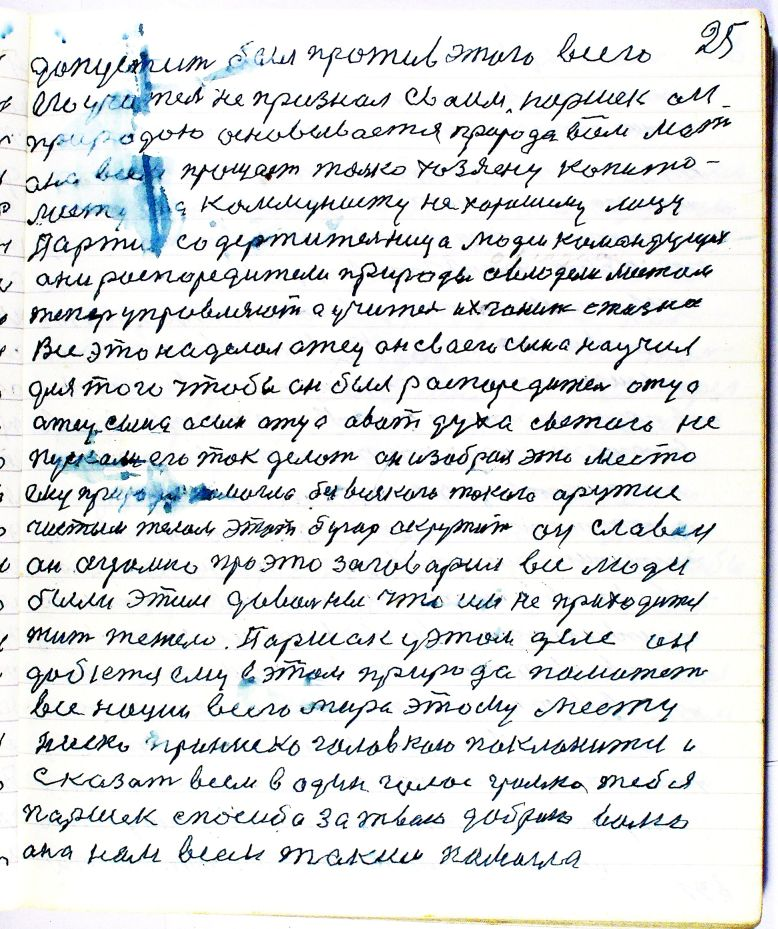 25
допустит был против этого всего
его учител не признал своим. паршек он
природою основывается природа всем мат
она всем прощает толко хозяену копито-
листу на коммунисту не хорошему лицу
Партия содержителница люди командущих
они роспоредители природы овлодели местом
тепер управляют а учител их гоник
Все это наделол отец он своего сына научил
для того чтобы он был роспоредител отца
отец сына осын отца овот духа светого не
пускали его ток делот он изобрал это место
ему природа помогла безвсякого токого оружие
чистым телом этот бугор окружит он славен
он огромно про это заговорил все люди
были этим доволны что им не приходится
жит тежело. Паршек уэтом деле он
добется ему в этом природа поможет
все нации всего мира этому месту
ниско приниско головкою поклонится и
сказат всем в один голос громко тебя
паршек спосиба за твою добрую волю
она нам всем таким помогла